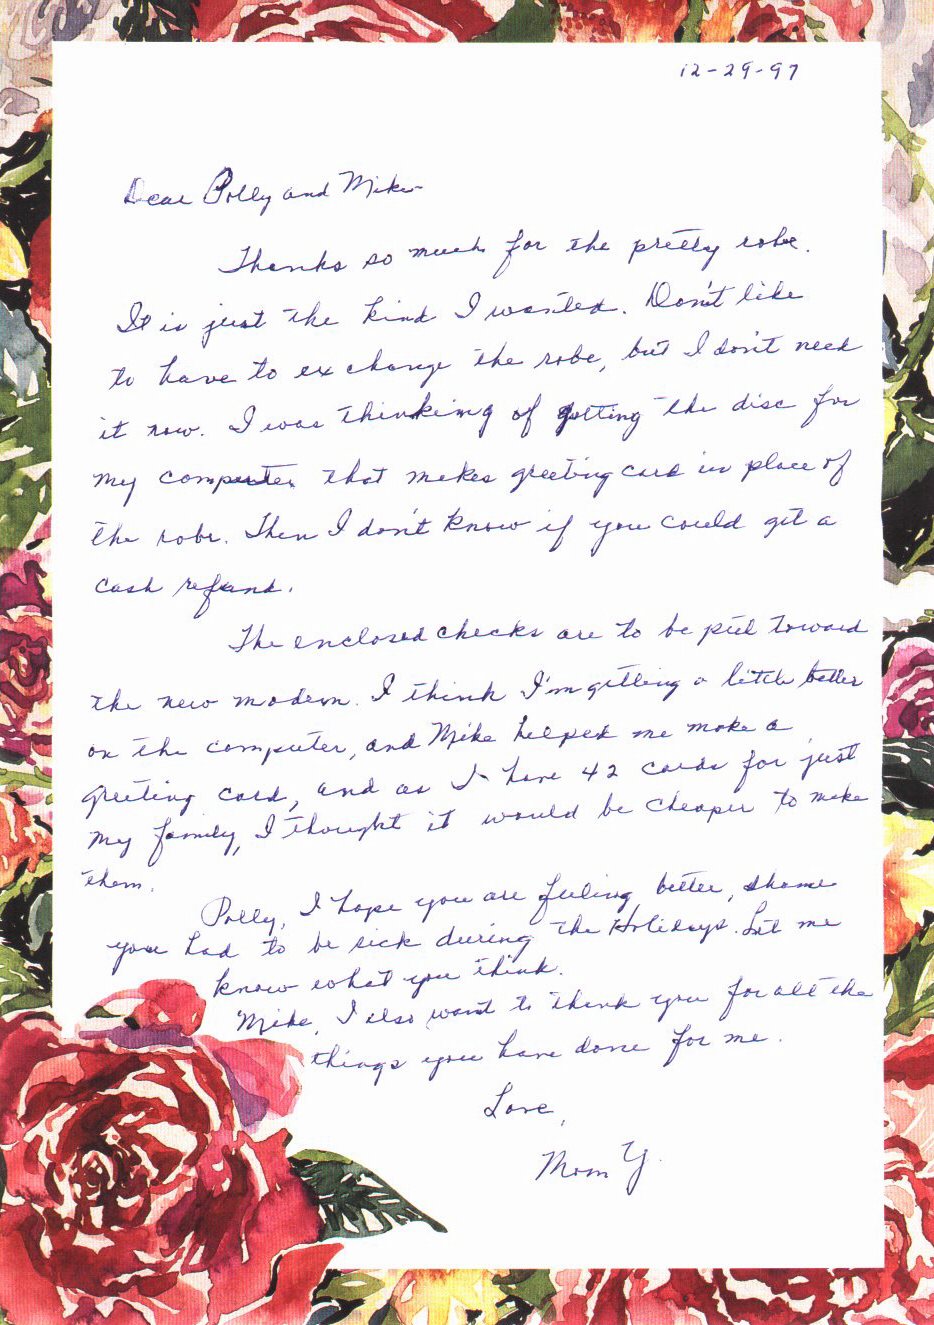 12-29-97
Dear Polly and Mike-
Thanks so much for the pretty robe.
It is just the kind I wanted. Don't like
to have to exchange the robe, but I don't need
it now. I was thinking of getting the disc for
my computer that makes greeting card in place of
the robe. Then I don't know if you could get a
cash refund.
The enclosed checks are to be put toward
the new modem. I think I'm getting a little better
on the computer, and Mike helped me make a
greeting card, and as I have 42 cards for just
my family, I thought it would be cheaper to make
them.
Polly, I hope you are feeling better, shame
you had to be sick during the Holidays. Let me
know what you think.
Mike, I also want to thank you for all the
things you have done for me.
Love,
Mom Y.